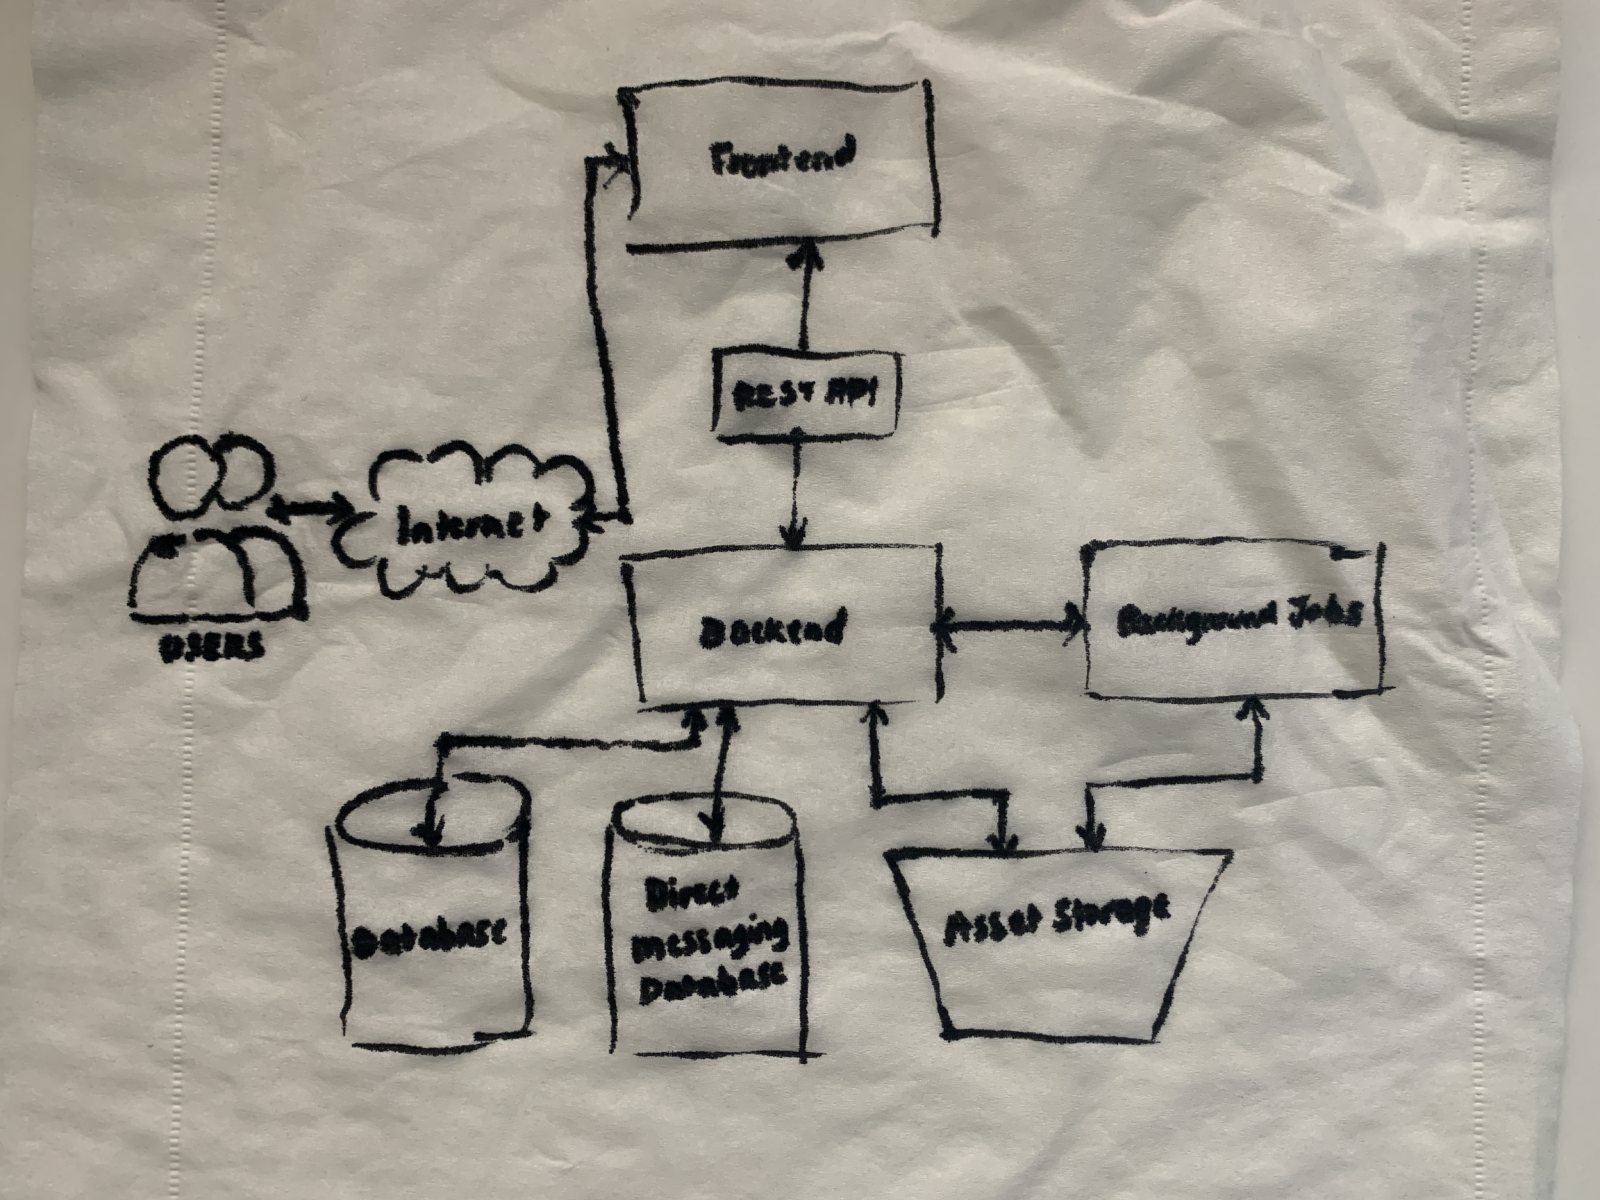 Frontend
REST API
Internet
USERS
Backend
Background Jobs
Database
Direct
Messaging
Database
Asset Storage